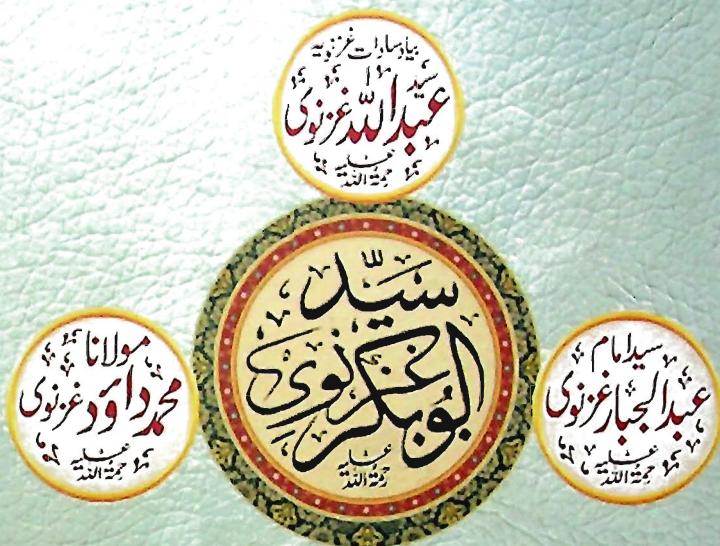 بیاد سادات غزنویہ
سید
عبداللہ غزنوی
رحمۃ اللہ علیہ
سید
ابوبکر غزنوی
رحمۃ اللہ علیہ
سید امام
عبدالجبار غزنوی
رحمۃ اللہ علیہ
مولانا
محمد داؤد غزنوی
رحمۃ اللہ علیہ